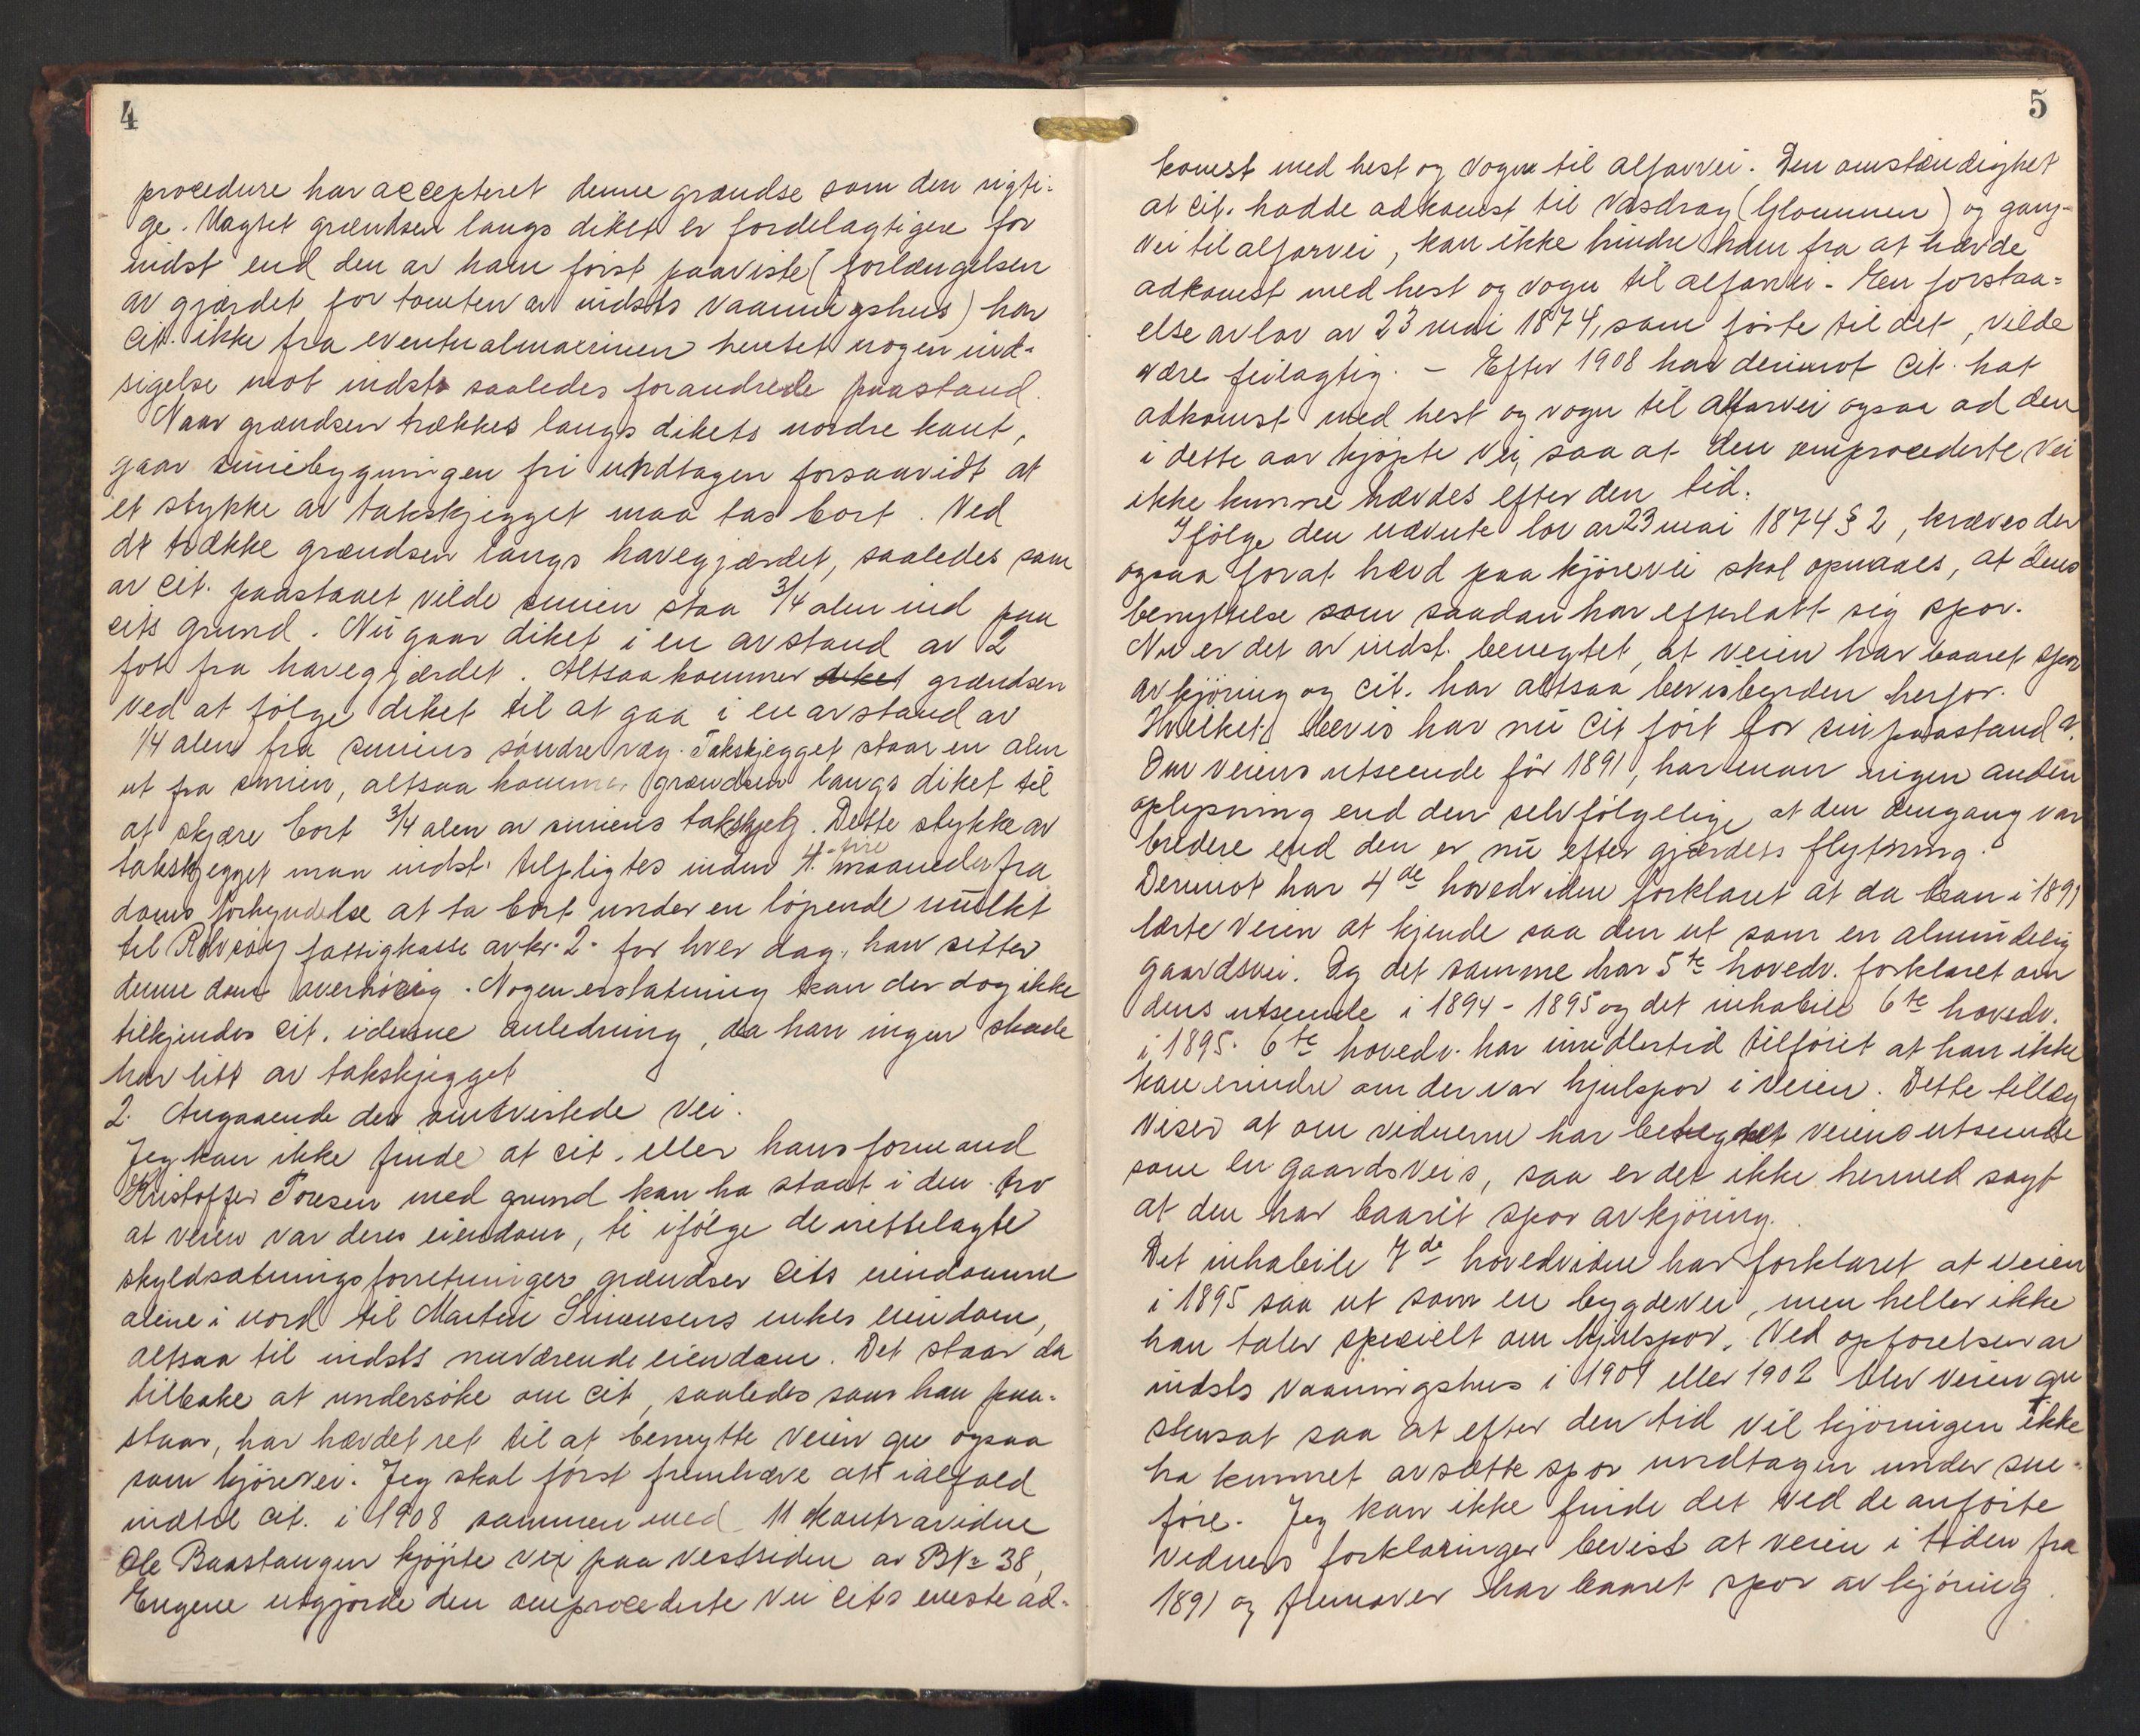 4
procedure har accepteret denne grændse som den rigti-
ge. Uagtet grændsen langs diket er fordelagtigere for
indst end den av ham først paaviste (forlængelsen
av gjærdet for tomten av indsts vaaningshus) har
cit. ikke fra eventualmaximen hentet nogen ind-
sigelse mot indsts saaledes forandrede paastand.
Naar grændsen trækkes langs dikets nordre kant,
gaar smiebygningen fri undtagen forsaavidt at
et stykke av takskjegget maa tas bort. Ved
at trække grændsen langs havegjærdet, saaledes som
av cit. paastaaet vilde smien staa 3/4 alen ind paa
cits grund. Nu gaar diket i en avstand av 2
fot fra havegjærdet. Altsaa kommer diket grændsen
ved at følge diket til at gaa i en avstand av
1/4 alen fra smiens søndre væg. Takskjegget staar en alen
ut fra smien, altsaa kommer grændsen langs diket til
at skjære bort 3/4 alen av smiens takskjeg. Dette stykke av
takskjegget maa indst. tilpligtes inden 4. fire maaneder fra
doms forkyndelse at ta bort under en løpende mulkt
til Rolvsøy fattigkasse av kr. 2. for hver dag, han sitter
denne dom overhørig. Nogen erstatning kan der dog ikke
tilkjendes cit. i denne anledning, da han ingen skade
har litt av takskjegget
2. Angaaende den omtvistede vei.
Jeg kan ikke finde at cit. eller hans formand
Kristoffer Toresen med grund kan ha staat i den tro
at veien var deres eiendom, ti ifølge de nettelagte
skyldsætningsforretninger grændser cits eiendomme
alene i nord til Martin Simensens enkes eiendom,
altsaa til indsts nuværende eiendom. Det staar da
tilbake at undersøke om cit, saaledes som han paa-
staar, har hævdet ret til at benytte veien qu ogsaa
som kjørevei. Jeg skal først fremhæve att ialfald
indtil cit. i 1908 sammen med 11 kontravidne
Ole Baastangen kjøpte vei paa vestsiden av BNr 38,
Engene utgjorde den omprocederte vei cits eneste ad-
5
komst med hest og vogn til alfarvei. Den omstændighet
at cit. hadde adkomst til vasdrag (Glommen) og gang-
vei til alfarvei, kan ikke hindre ham fra at hævde
adkomst med hest og vogn til alfarvei. En forstaa-
else av lov av 23 mai 1874, som førte til det, vilde
være feilagtig. – Efter 1908 har derimot cit. hat
adkomst med hest og vogn til alfarvei ogsaa ad den
i dette aar kjøpte vei, saa at den omprocederte vei
ikke kunne hævdes efter den tid.
Ifølge den nævnte lov av 23 mai 1874 § 2, kræves der
ogsaa forat hævd paa kjørevei skal opnaaes, at dens
benyttelse som saadan har efterlatt sig spor.
Nu er det av indst. benegtet, at veien har baaret spor
av kjøring og cit. har altsaa bevisbyrden herfor.
Hvilket bevis har nu cit ført for sin paastand?
Om veiens utseende før 1891, har man ingen anden
oplysning end den selvfølgelige, at den dengang var
bredere end den er nu efter gjærdets flytning.
Derimot har 4de hovedvidne forklaret at da han i 1891
lærte veien at kjende saa den ut som en almindelig
gaardsvei. Og det samme har 5te hovedv. forklaret om
dens utseende i 1894 - 1895 og det inhabile 6te hovedv.
i 1895. 6te hovedv. har imidlertid tilføiet at han ikke
kan erindre om der var hjulspor i veien. Dette tillæg
viser at om vidnerne har betegnet veiens utseende
som en gaardsveis, saa er det ikke hermed sagt
at den har baaret spor av kjøring.
Det inhabile 7de hovedvidne har forklaret at veien
i 1895 saa ut som en bygdevei, men heller ikke
han taler specielt om hjulspor. Ved opførelsen av
indsts vaaningshus i 1901 eller 1902 blev veien qu
stensat saa at efter den tid vil kjøringen ikke
ha kunnet avsætte spor undtagen under sne-
føre. Jeg kan ikke finde det ved de anførte
vidners forklaringer bevist at veien i tiden fra
1891 og fremover har baaret spor av kjøring